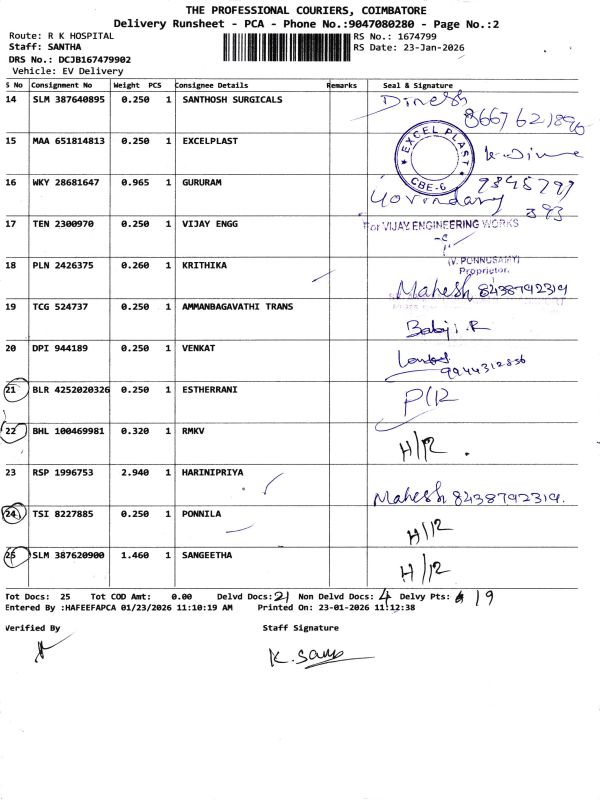 THE PROFESSIONAL COURIERS, COIMBATORE
Delivery Runsheet - PCA - Phone No.:9047080280 - Page No.:2
Route: R K HOSPITAL
RS No.: 1674799
Staff: SANTHA
RS Date: 23-Jan-2026
DRS No.: DCJB167479902
Vehicle: EV Delivery
S No Consignment No Weight PCS Consignee Details Remarks Seal & Signature
14 SLM 387640895 0.250 1 SANTHOSH SURGICALS Dinesh
8667621896
15 MAA 651814813 0.250 1 EXCELPLAST EXCEL PLAST CBE-6
16 WKY 28681647 0.965 1 GURURAM Govindaraj
17 TEN 2300970 0.250 1 VIJAY ENGG For VIJAY ENGINEERING WORKS
(V. PONNUSAMY)
Proprietor.
18 PLN 2426375 0.260 1 KRITHIKA Mahesh 8438792319
19 TCG 524737 0.250 1 AMMANBAGAVATHI TRANS Babyi.R
20 DPI 944189 0.250 1 VENKAT
9944312856
21 BLR 4252020326 0.250 1 ESTHERRANI P/12
22 BHL 100469981 0.320 1 RMKV H/12
23 RSP 1996753 2.940 1 HARINIPRIYA Mahesh 8438792319.
24 TSI 8227885 0.250 1 PONNILA H/12
25 SLM 387620900 1.460 1 SANGEETHA H/12
Tot Docs: 25 Tot COD Amt: 0.00 Delvd Docs: 21 Non Delvd Docs: 4 Delvy Pts: 19
Entered By :HAFEEFAPCA 01/23/2026 11:10:19 AM Printed On: 23-01-2026 11:12:38
Verified By Staff Signature